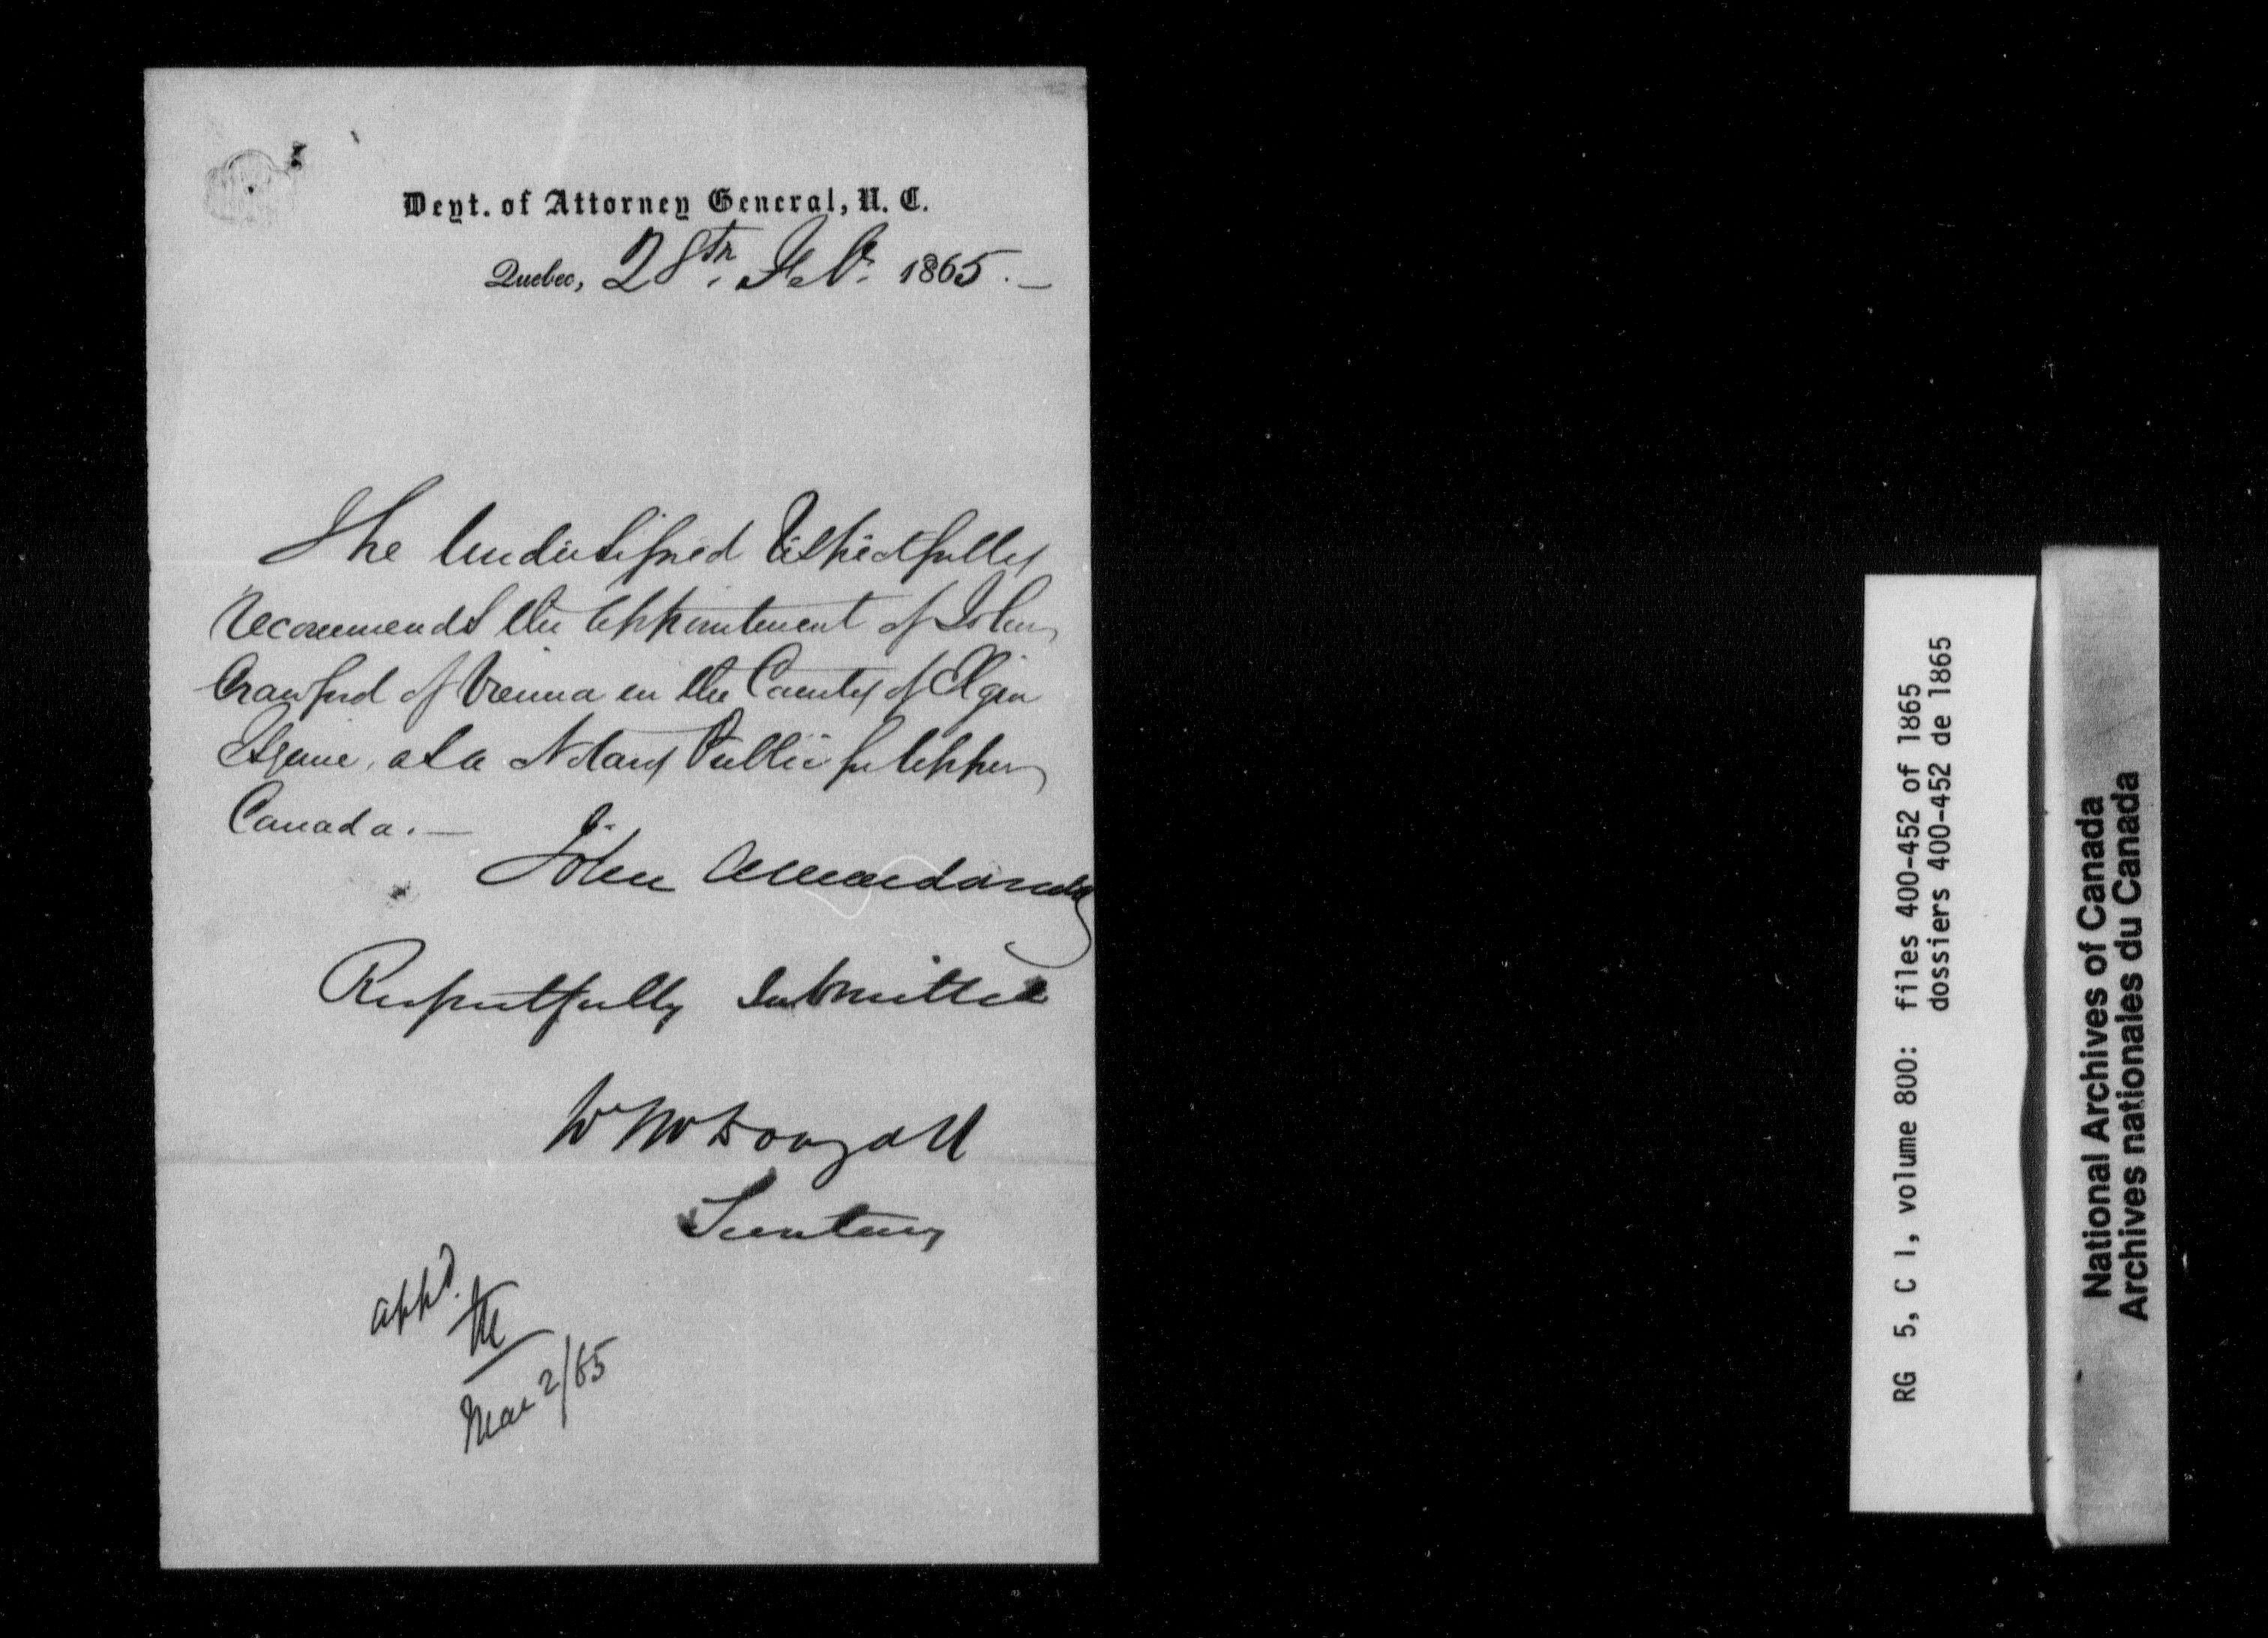 Dept. of Attorney General, U. C.
Quebec, 28th, Feby. 1865.—
The Undersigned Respectfully
recommends the appointment of John
Crawford of Vienna in the County of Elgin
Esquire, as a Notary Public for Upper
Canada.—
John A Macdonald
Respectfully submitted
Wm McDougall
Secretary
appd.
Mar 2/65
RG 5, C 1, volume 800: files 400-452 of 1865
dossiers 400-452 de 1865
National Archives of Canada
Archives nationales du Canada